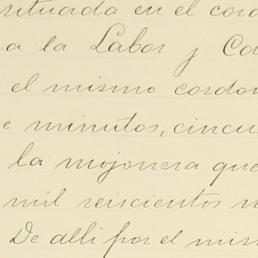 situada en el cord
a la Labor y Ca
el mismo cordon
e minutos, cincu
la mojonera que
mil seiscientos
De alli por el mism